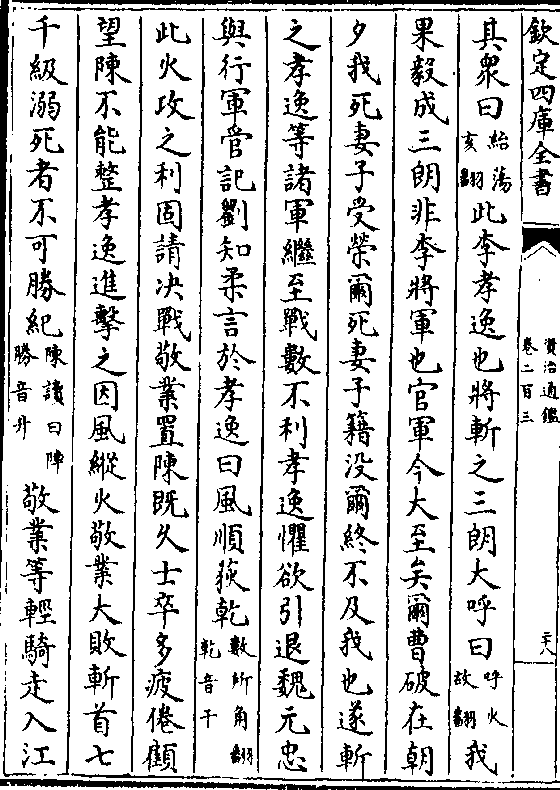 欽定四庫全書
資治通鑑
卷二百三
二八
其衆曰
紿蕩
亥翻
此李孝逸也將斬之三朗大呼曰
呼火
故翻
我
果毅成三朗非李將軍也官軍今大至矣爾曹破在朝
夕我死妻子受榮爾死妻子籍没爾終不及我也遂斬
之孝逸等諸軍繼至戰數不利孝逸懼欲引退魏元忠
與行軍管記劉知柔言於孝逸曰風順荻乾
數所角翻
乾音干
此火攻之利固請決戰敬業置陳既久士卒多疲倦顧
望陳不能整孝逸進擊之因風縱火敬業大敗斬首七
千級溺死者不可勝紀
陳讀曰陣
勝音升
敬業等輕騎走入江